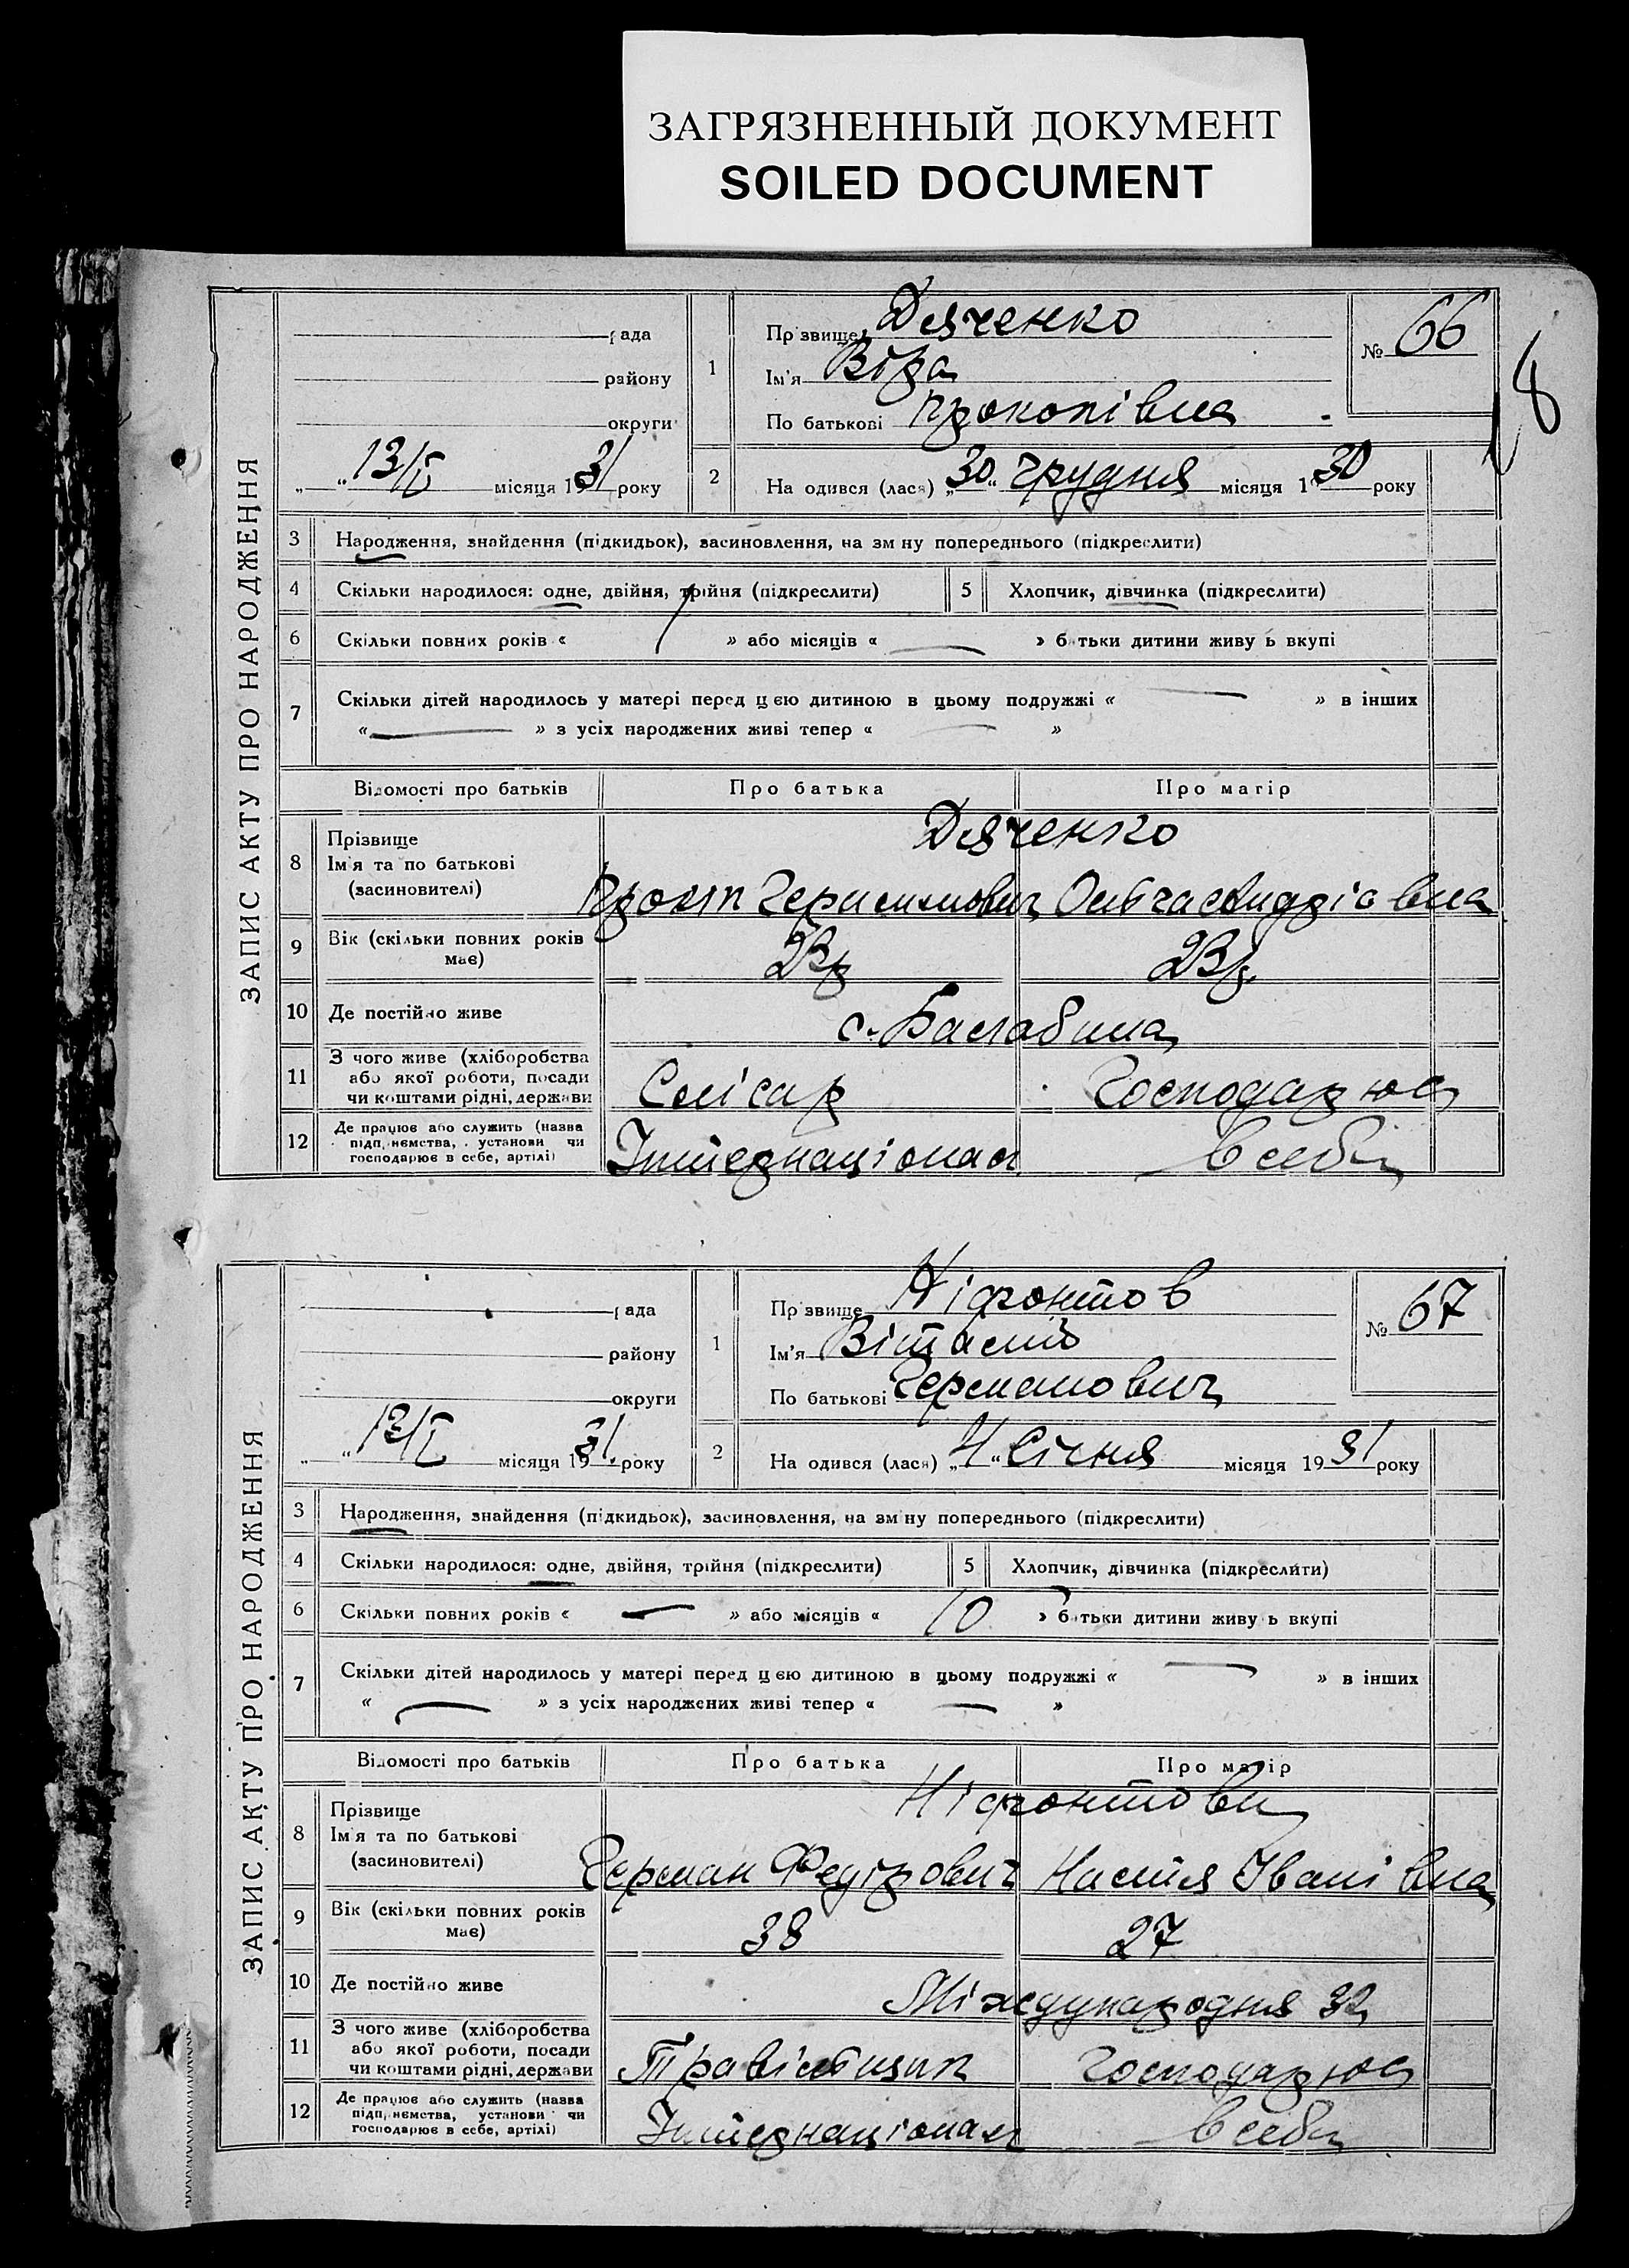 ЗАГРЯЗНЕННЫЙ ДОКУМЕНТ
SOILED DOCUMENT
8
ЗАПИС АКТУ ПРО НАРОДЖЕННЯ
рада
району
округи
„ “ 13/I місяця 1931 року
1
Прізвище Дяченко
Ім'я Віра
По батькові Прокопівна
№ 66
2
На одився (лася) „30“ грудня місяця 1930 року
3 Народження, знайдення (підкидьок), засиновлення, на зм ну попереднього (підкреслити)
4 Скільки народилося: одне, двійня, трійня (підкреслити) 5 Хлопчик, дівчинка (підкреслити)
6 Скільки повних років « » або місяців « » б тьки дитини живу ь вкупі
7 Скільки дітей народилось у матері перед цією дитиною в цьому подружжі « » в інших
« » з усіх народжених живі тепер « »
Відомості про батьків Про батька Про матір
8 Прізвище Дяченко
Ім'я та по батькові
(засиновителі) Прокіп Герисимович Ольга Андріівна
9 Вік (скільки повних років
має) 23 р 23 р.
10 Де постійно живе с. Балабина
11 З чого живе (хліборобства
або якої роботи, посади
чи коштами рідні, держави Слісар Господарює
12 Де працює або служить (назва
підп, иємства, установи чи
господарює в себе, артілі) Інтернаціонал В себе
ЗАПИС АКТУ ПРО НАРОДЖЕННЯ
рада
району
округи
„ “ 13/I місяця 1931 року
1
Прізвище Ніфонтов
Ім'я Віталій
По батькові Германович
№ 67
2
На одився (лася) „4“ Січня місяця 1931 року
3 Народження, знайдення (підкидьок), засиновлення, на зм ну попереднього (підкреслити)
4 Скільки народилося: одне, двійня, трійня (підкреслити) 5 Хлопчик, дівчинка (підкреслити)
6 Скільки повних років « » або місяців « 10 » б тьки дитини живу ь вкупі
7 Скільки дітей народилось у матері перед цією дитиною в цьому подружжі « » в інших
« » з усіх народжених живі тепер « »
Відомості про батьків Про батька Про матір
8 Прізвище Ніфонтови
Ім'я та по батькові
(засиновителі) Герман Федірович Настя Іванівна
9 Вік (скільки повних років
має) 38 27
10 Де постійно живе Міжнународня 32
11 З чого живе (хліборобства
або якої роботи, посади
чи коштами рідні, держави Господарює
12 Де працює або служить (назва
підп, иємства, установи чи
господарює в себе, артілі) Інтернаціонал В себе